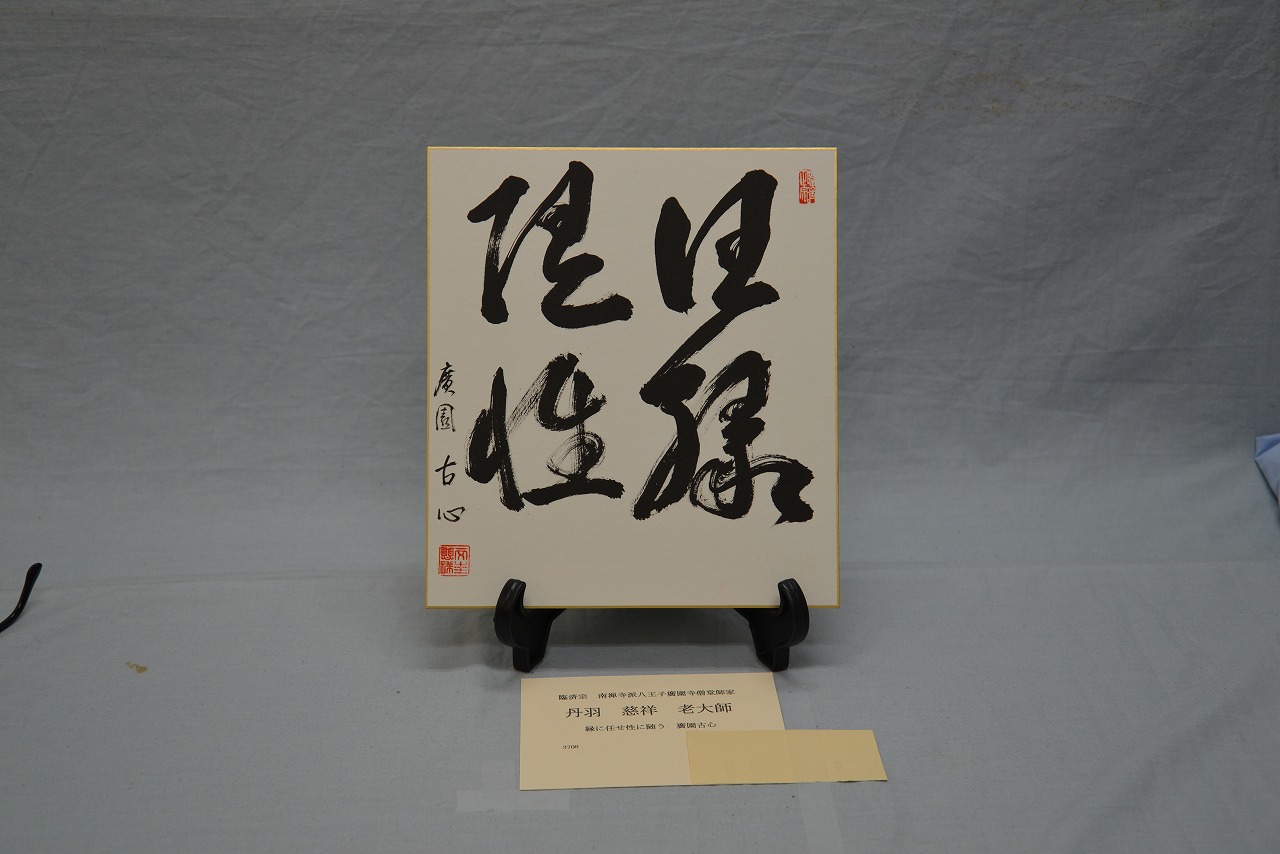 任縁
随性
廣園 古心
臨済宗　南禅寺派八王子廣園寺僧堂師家
丹羽　慈祥　老大師
縁に任せ性に随う　廣園古心
3708